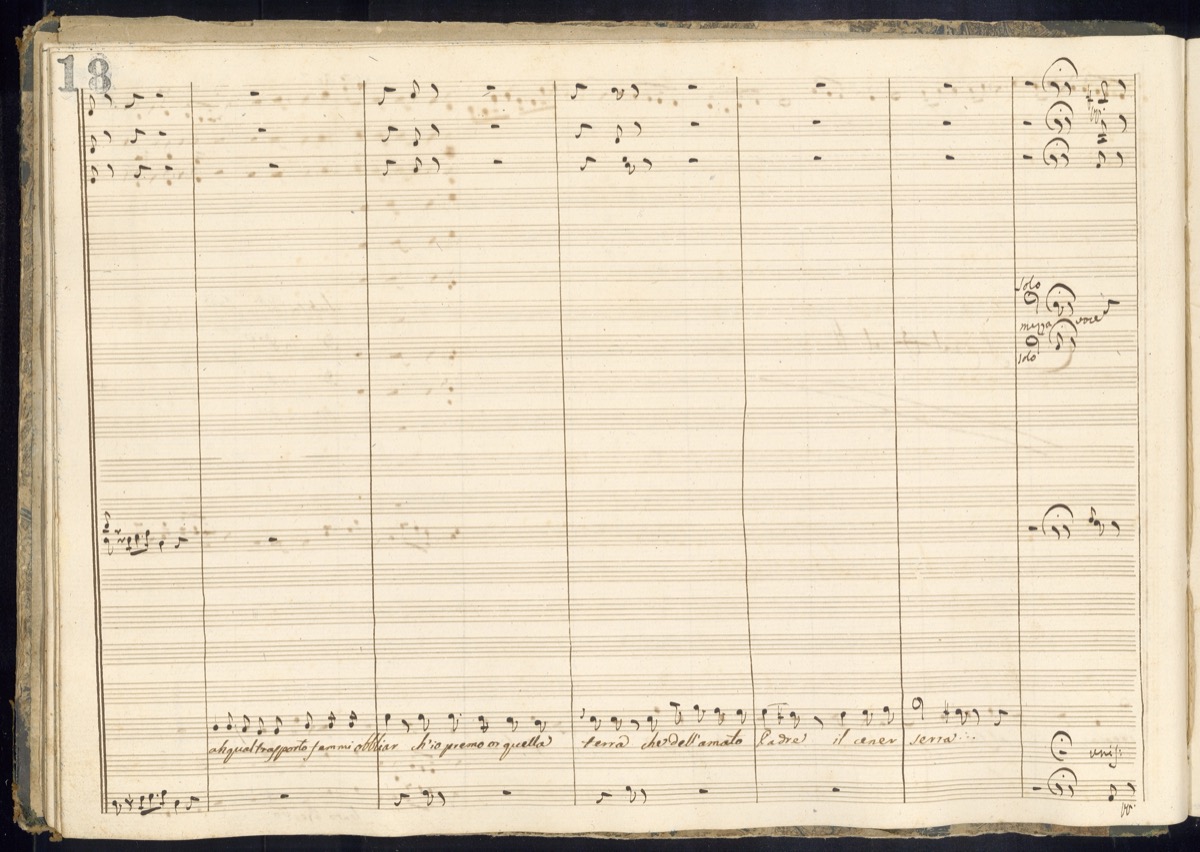 18
Solo
mezza voce
Solo
ah qual trasporto fammi obbliar ch'io premo or quella terra che dell'amato Padre il cener serra...
unis: